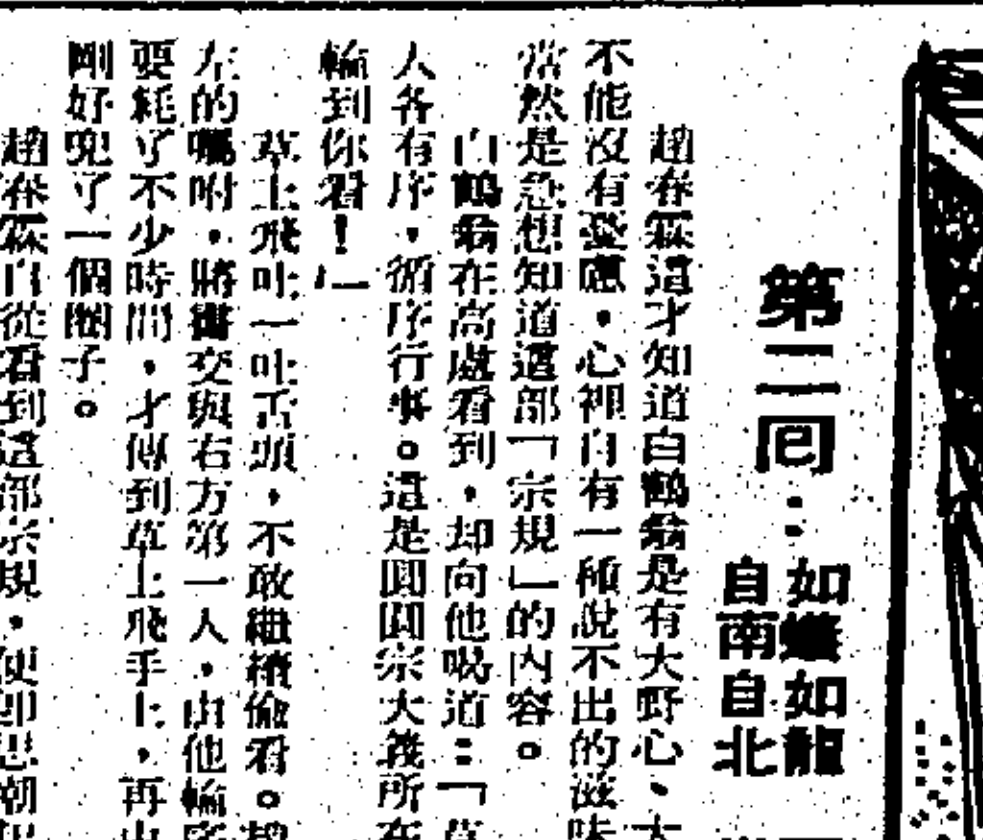 第二回：
如蠖如龍
自南自北
趙春霖這才知道白鶴翁是有大野心、大
不能沒有憂慮，心裡自有一種說不出的滋味
當然是急想知道這部「宗規」的內容。
白鶴翁在高處看到，却向他喝道：「
人各有序，循序行事。這是圓圓宗大義所在
輪到你看！」
草上飛吐一吐舌頭，不敢繼續偷看。趙
左的囑咐，將書交與右方第一人，由他輪
要耗了不少時間，才傳到草上飛手上，再由
剛好兜了一個圈子。
趙春霖自從看到這部宗規，便即思潮起